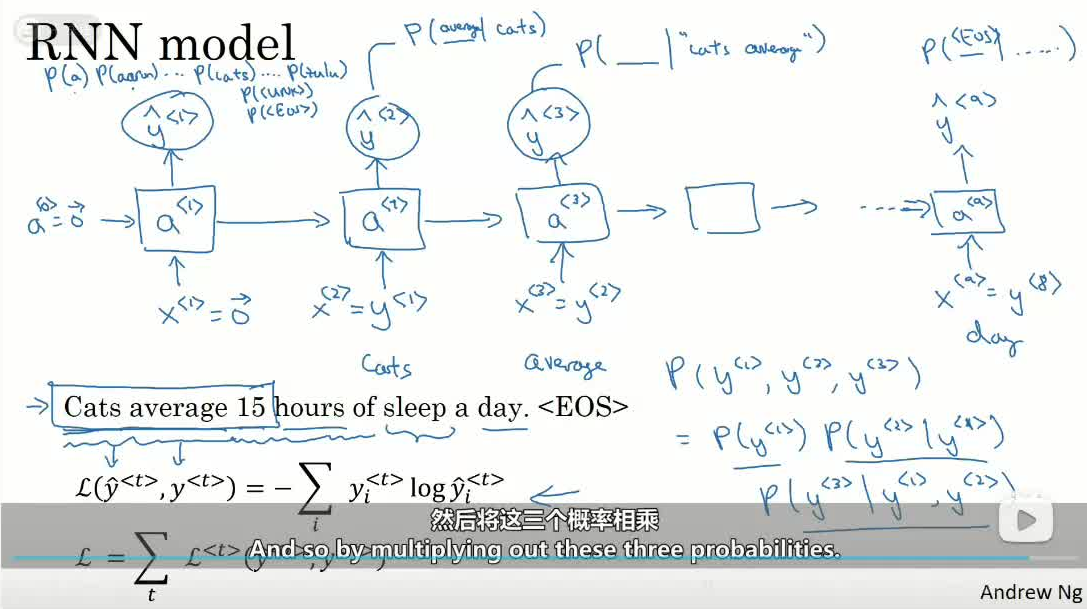 RNN model
P(a) P(aaron) ... P(cats) .... P(zulu)
P(<UNK>)
P(<EOS>)
P(average | cats)
P(___ | "cats average")
P(<EOS> | .....)
ŷ<1> ŷ<2> ŷ<3> ŷ<9>
a<0> = 0⃗ → a<1> → a<2> → a<3> → → ----→ a<9>
x<1> = 0⃗ x<2> = y<1> x<3> = y<2> x<9> = y<8>
Cats average day
→ Cats average 15 hours of sleep a day. <EOS>
P(y<1>, y<2>, y<3>)
= P(y<1>) P(y<2> | y<1>)
P(y<3> | y<1>, y<2>)
ℒ(ŷ<t>, y<t>) = − ∑i yi<t> log ŷi<t>
然后将这三个概率相乘
And so by multiplying out these three probabilities.
ℒ = ∑t ℒ<t>(
Andrew Ng